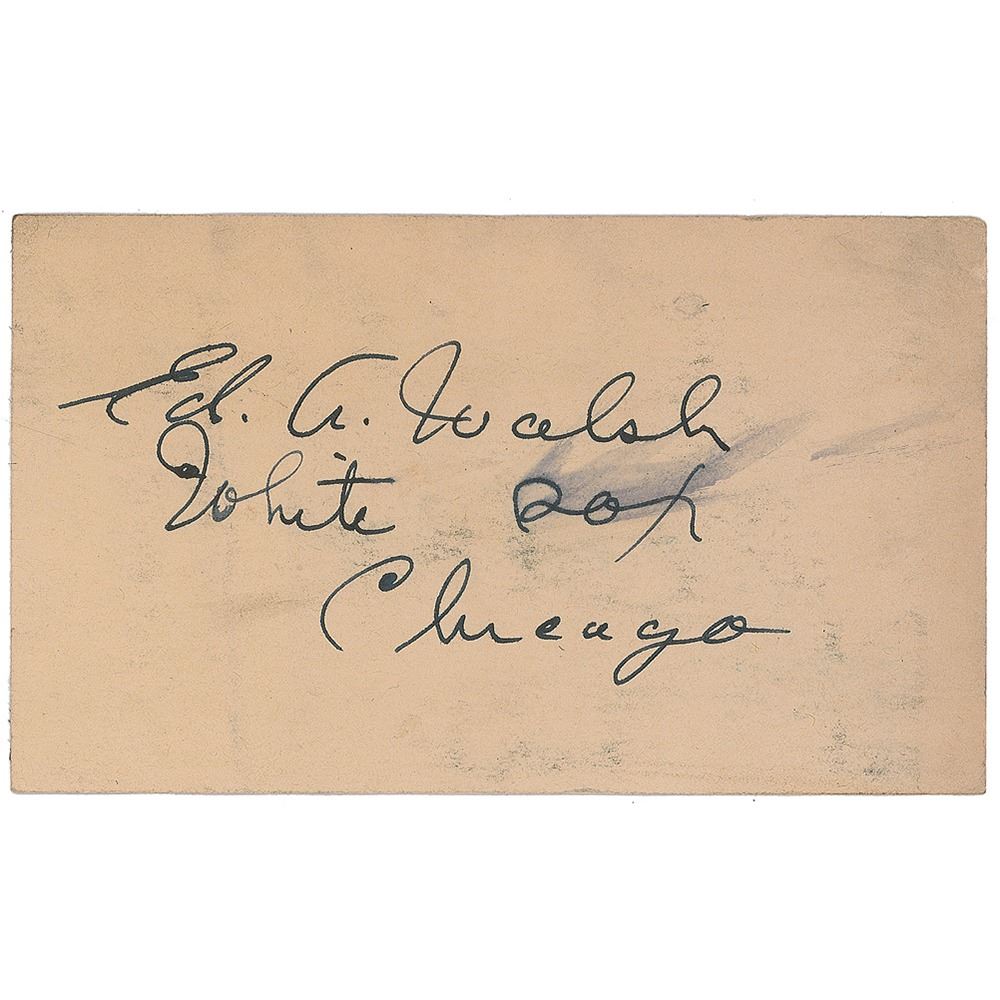 Ed. A. Walsh
White Sox
Chicago